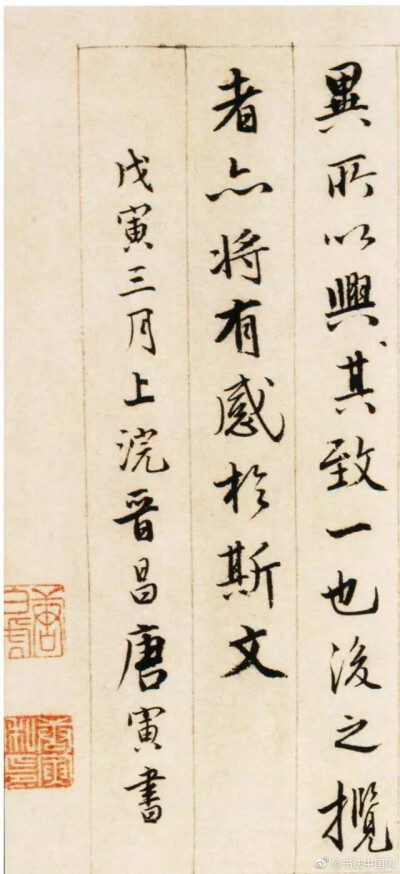 異所以興其致一也後之攬
者亦將有感於斯文
戊寅三月上浣晉昌唐寅書
@书法中国网